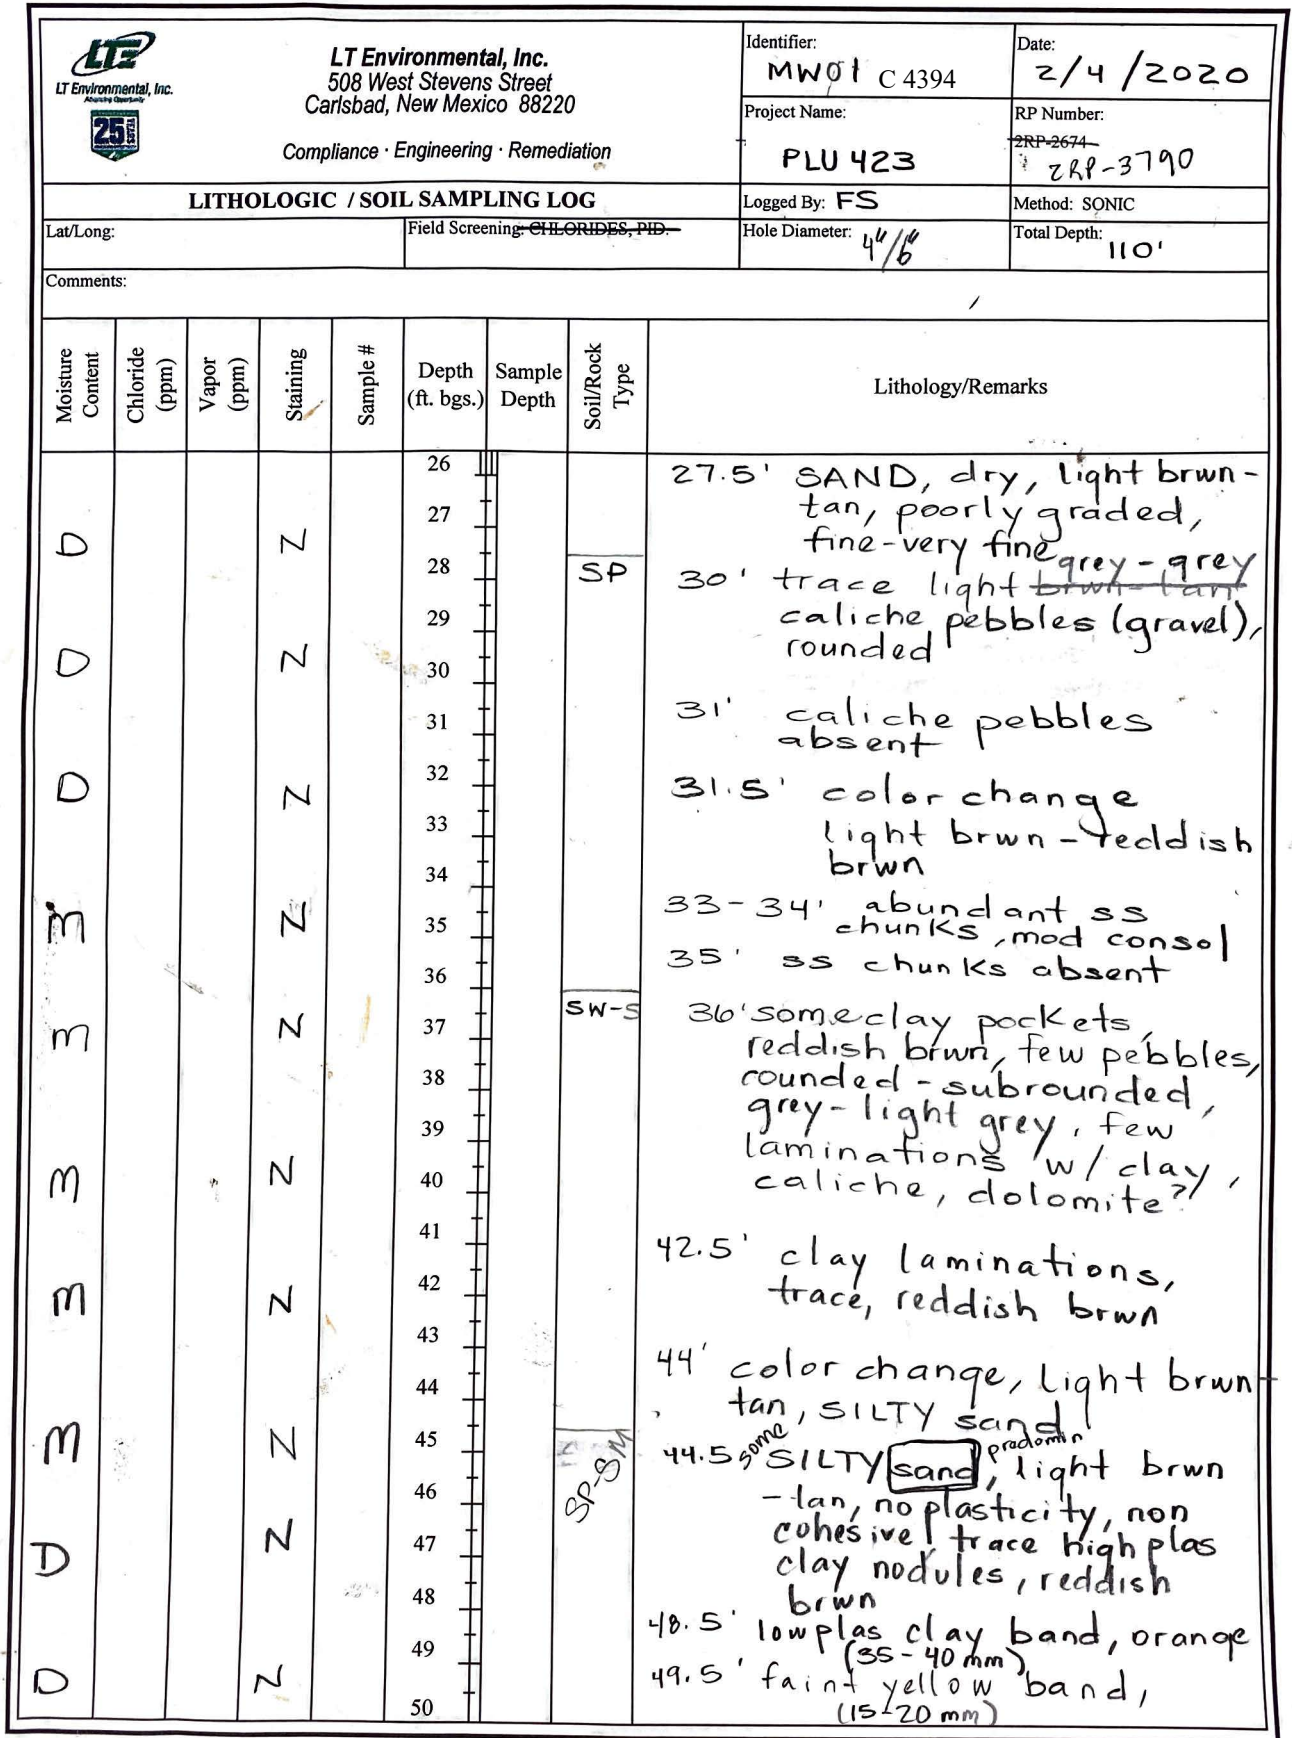 LTE
LT Environmental, Inc.
Advancing Opportunity
25 YEARS
LT Environmental, Inc.
508 West Stevens Street
Carlsbad, New Mexico 88220
Compliance · Engineering · Remediation
Identifier:
MW01 C 4394
Date:
2/4/2020
Project Name:
PLU 423
RP Number:
2RP-2674
2RP-3790
LITHOLOGIC / SOIL SAMPLING LOG
Logged By: FS
Method: SONIC
Lat/Long:
Field Screening: CHLORIDES, PID.
Hole Diameter: 4"/6"
Total Depth:
110'
Comments:
Moisture Content
Chloride (ppm)
Vapor (ppm)
Staining
Sample #
Depth (ft. bgs.)
Sample Depth
Soil/Rock Type
Lithology/Remarks
26
27.5' SAND, dry, light brwn-
27
tan, poorly graded,
D N
fine-very fine
28 SP
grey-grey
30' trace light brwn-tan
29
caliche pebbles (gravel),
rounded
D N
30
31
31' caliche pebbles
absent
32
D N
31.5' color change
33
light brwn-reddish
34
brwn
33-34' abundant ss
m N
35
chunks, mod consol
35' ss chunks absent
36
SW-S
36' some clay pockets,
m N
37
reddish brwn, few pebbles,
38
rounded-subrounded,
39
grey-light grey, few
laminations w/ clay,
m N
40
caliche, dolomite?
41
42.5' clay laminations,
m N
42
trace, reddish brwn
43
44' color change, light brwn
44
tan, SILTY sand
m N
45
SP-SM
44.5 some SILTY sand, predomin light brwn
46
-tan, no plasticity, non
D N
47
cohesive, trace high plas
clay nodules, reddish
48
brwn
48.5' low plas clay band, orange
49
(35-40 mm)
D N
49.5' faint yellow band,
50
(15-20 mm)